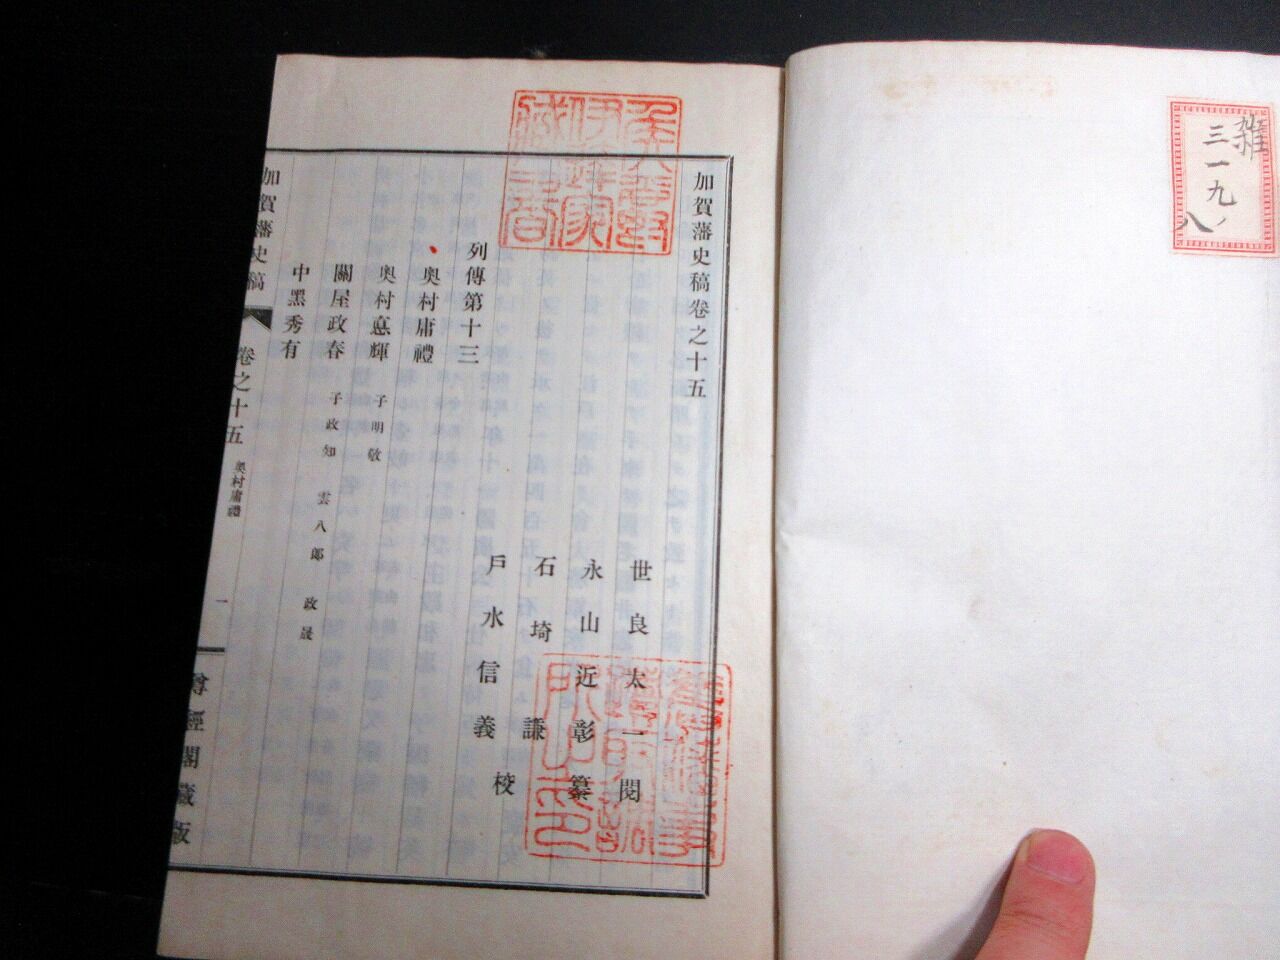 雑
三一九ノ
八
加賀藩史稿卷之十五
世良太一閱
永山近彰纂
石埼謙
戶水信義校
列傳第十三
奧村庸禮
奧村悳輝 子明敬
關屋政春 子政知 雲八郎 政晟
中黑秀有
加賀藩史稿 卷之十五 奧村庸禮 一 尊經閣藏版